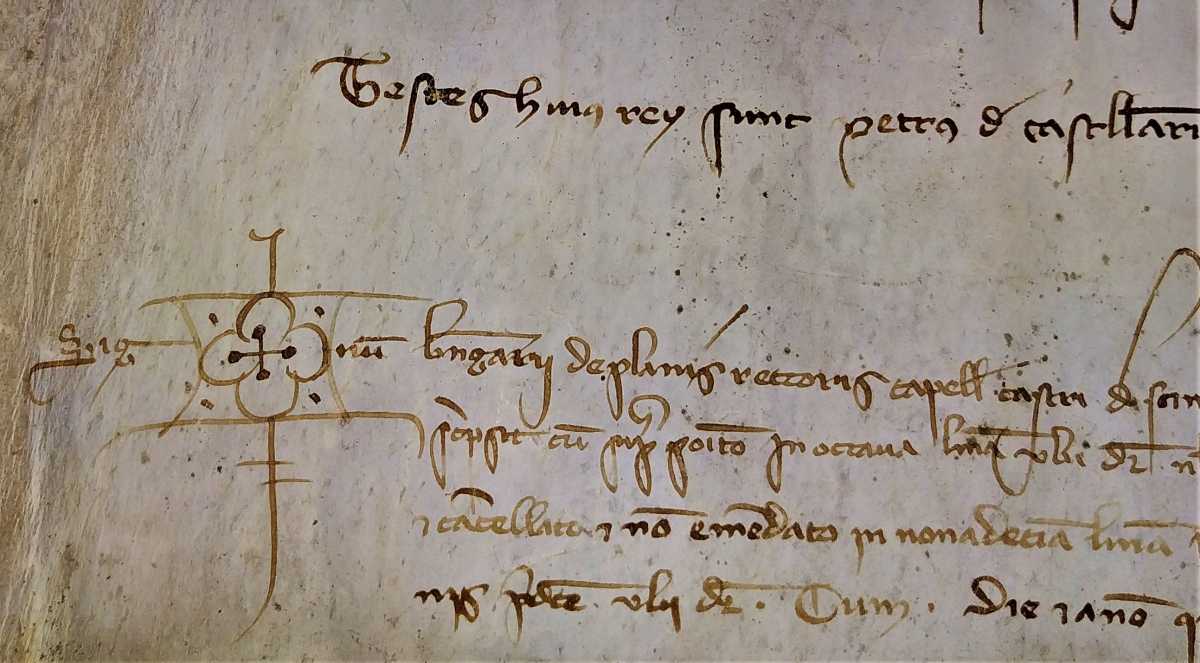 Testes huius rey sunt petrus de castellari
Sig num bngarii de planis rectoris capelle castri de
scripsit cum supposito in octava linea ubi dr
et cancellato et non emendato in nonadecima linea
ubi dr. Cum. Die et anno q